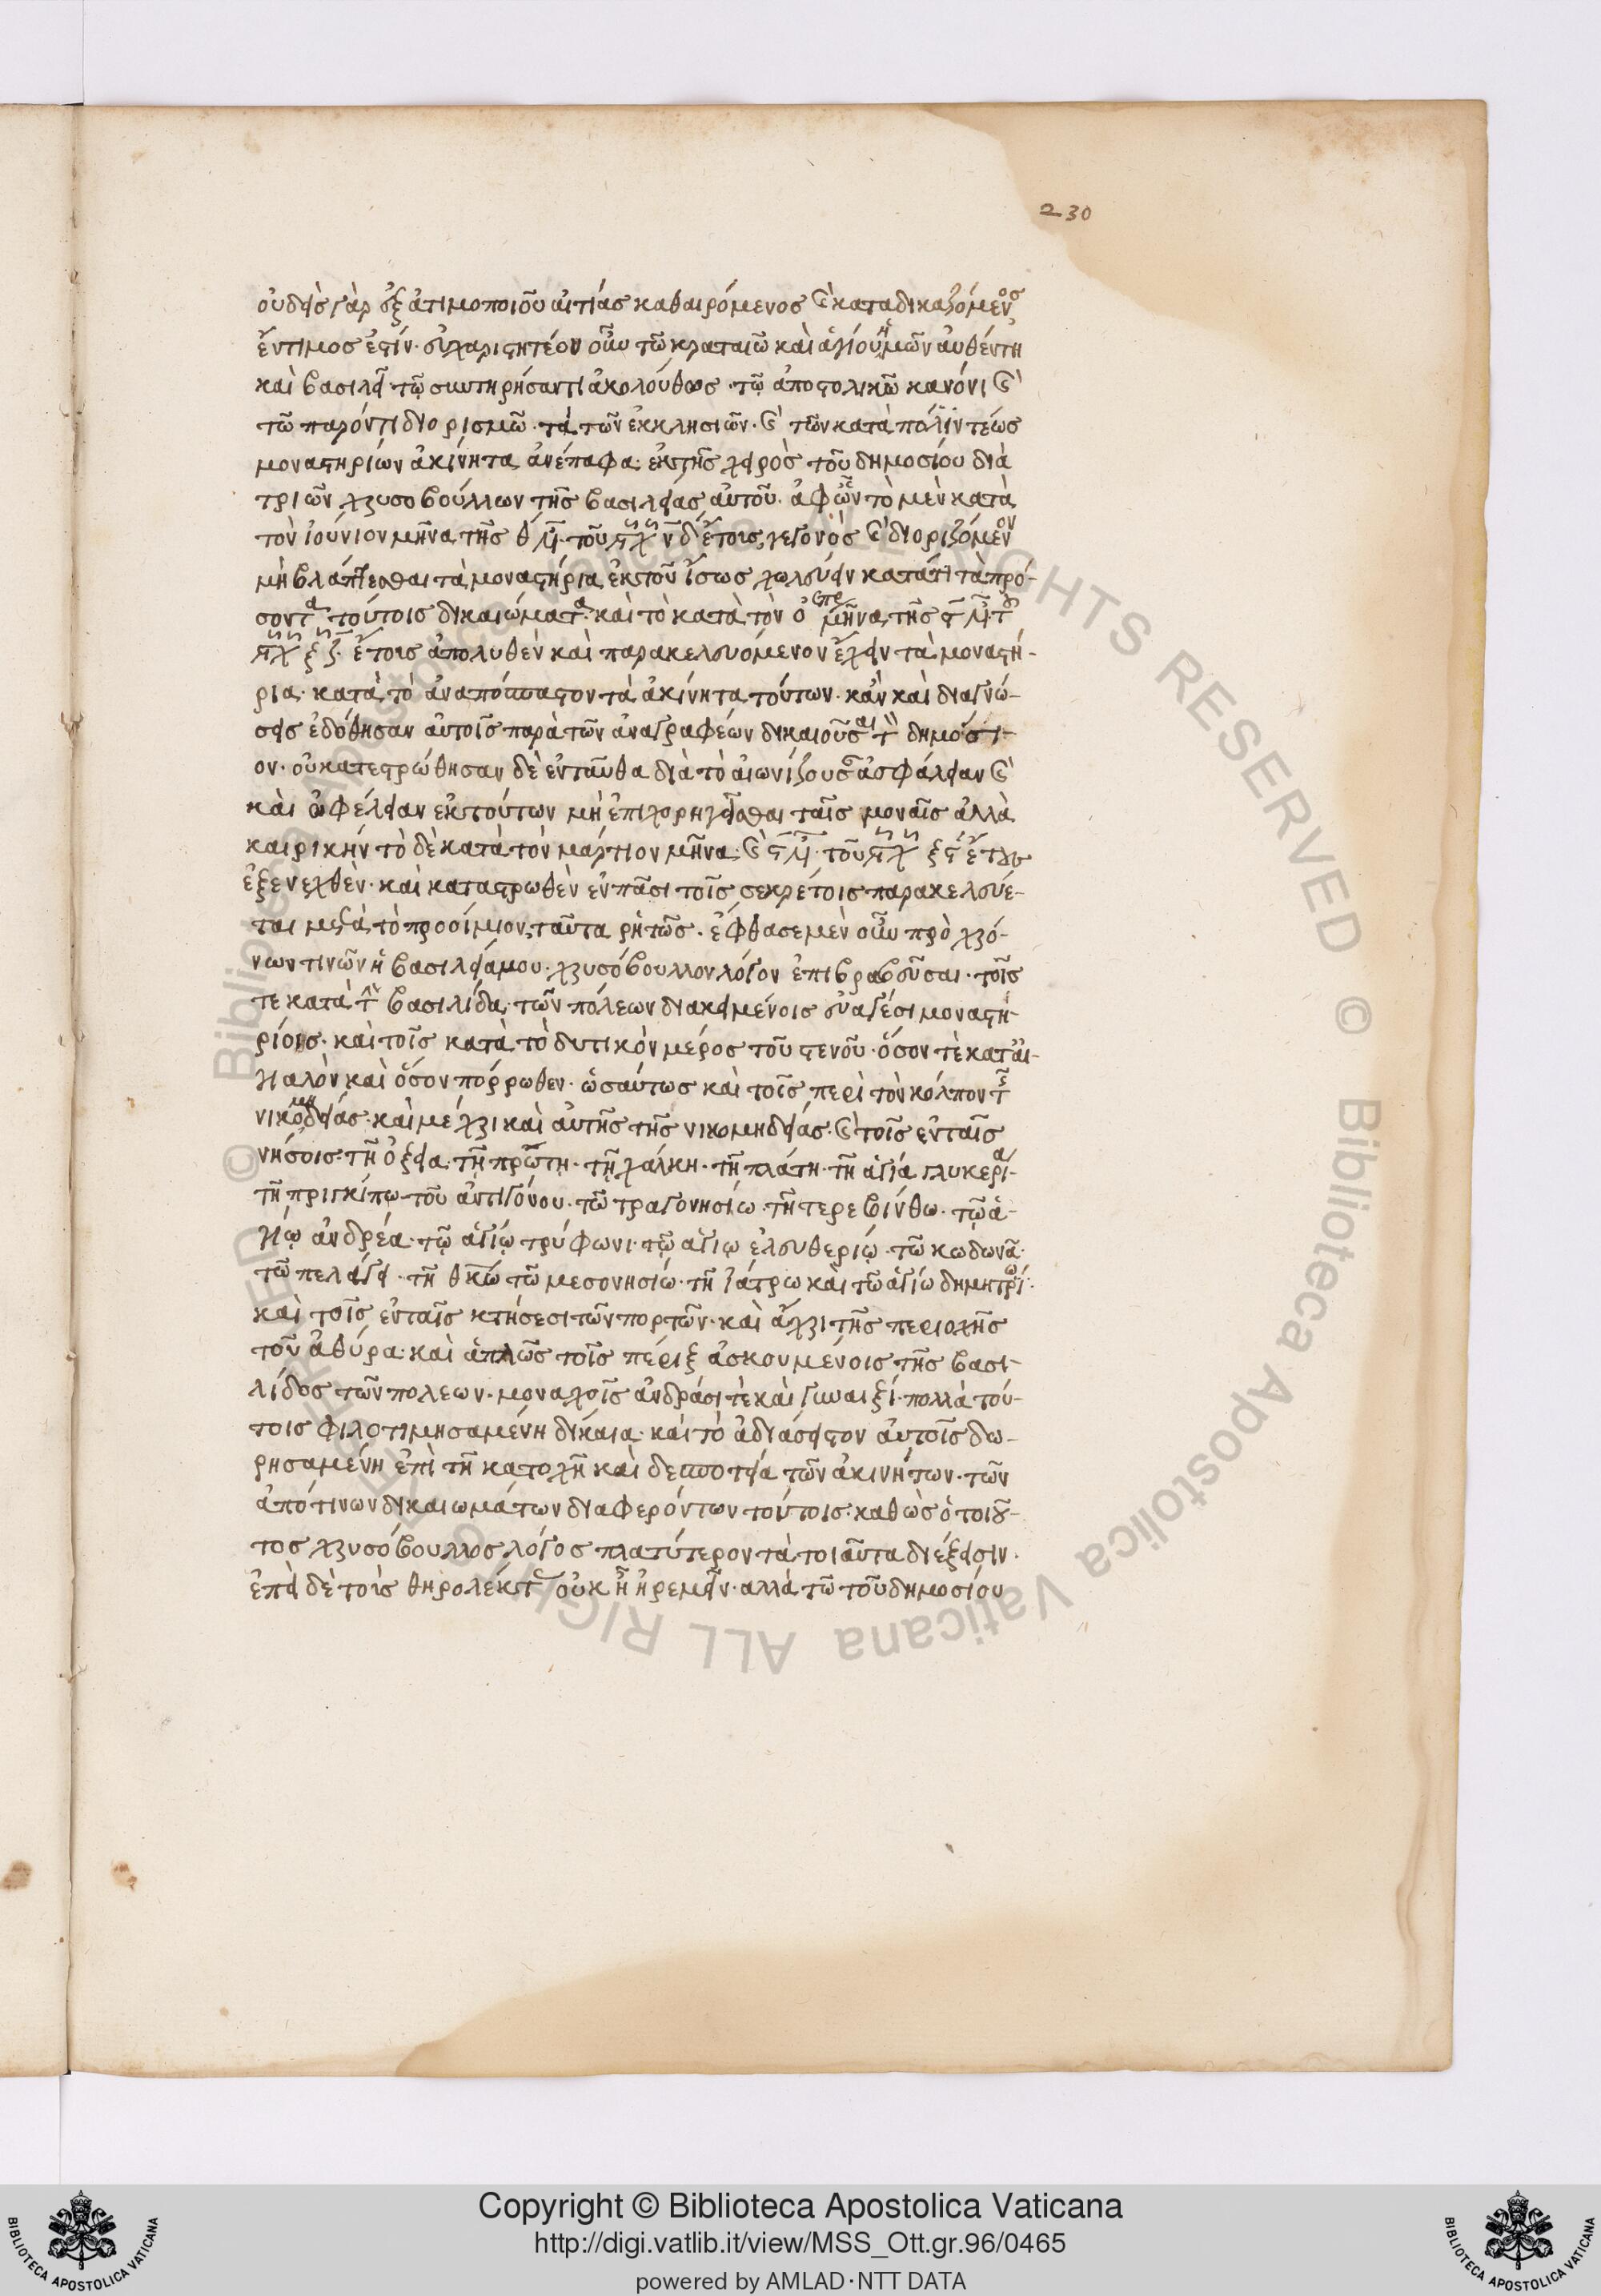 230
οὐδεὶς γὰρ ἐξ ἀτιμοποιοῦ αἰτίας καθαιρόμενος καὶ καταδικαζόμενος
ἔντιμος ἐστίν· εὐχαριστητέον οὖν τῶ κραταιῶ καὶ ἁγίω ἡμῶν αὐθέντη
καὶ βασιλεῖ τῷ συντηρήσαντι ἀκολούθως τῷ ἀποστολικῶ κανόνι καὶ
τῶ παρόντι διορισμῶ· τὰ τῶν ἐκκλησιῶν· καὶ τῶν κατὰ πόλιν τέως
μοναστηρίων ἀκίνητα ἀνέπαφα ἐκ τῆς χειρὸς τοῦ δημοσίου διὰ
τριῶν χρυσοβούλλων τῆς βασιλείας αὐτοῦ· ἀφ' ὧν τὸ μὲν κατὰ
τὸν ἰούνιον μῆνα τῆς θ ἰν· τοῦ ςχνδ ἔτους γεγονὸς καὶ διοριζόμενον
μὴ βλάπτεσθαι τὰ μοναστήρια ἐκ τοῦ ἴσως χωλεύειν κατά τι τὰ προ-
σόντα τούτοις δικαιώματα· καὶ τὸ κατὰ τὸν μῆνα τῆς ς ἰν· τοῦ
ςχξζ ἔτους ἀπολυθὲν καὶ παρακελευόμενον ἔχειν τὰ μοναστή-
ρια· κατὰ τὸ ἀναπόσπαστον τὰ ἀκίνητα τούτων· κἂν καὶ διαγνώ-
σεις ἐδόθησαν αὐτοῖς παρὰ τῶν ἀναγραφέων δικαιοῦσαι τὸν δημόσι-
ον· οὐ κατεστρώθησαν δὲ ἐνταῦθα διὰ τὸ αἰωνίζουσαν ἀσφάλειαν καὶ
καὶ ὠφέλειαν ἐκ τούτων μὴ ἐπιχορηγεῖσθαι ταῖς μοναῖς ἀλλὰ
καιρικήν τὸ δὲ κατὰ τὸν μάρτιον μῆνα· καὶ ς ἰν· τοῦ ςχξς ἔτους
ἐξενεχθὲν· καὶ καταστρωθὲν ἐν πᾶσι τοῖς σεκρέτοις παρακελεύε-
ται μετὰ τὸ προοίμιον ταῦτα ῥητῶς· ἔφθασε μὲν οὖν πρὸ χρό-
νων τινῶν ἡ βασιλεία μου· χρυσόβουλλον λόγον ἐπιβραβεῦσαι· τοῖς
τε κατὰ τὴν βασιλίδα τῶν πόλεων διακειμένοις εὐαγέσι μοναστη-
ρίοις· καὶ τοῖς κατὰ τὸ δυτικὸν μέρος τοῦ στενοῦ· ὅσον τὲ κατ' αἰ-
γιαλὸν καὶ ὅσον πόρρωθεν· ὡσαύτως καὶ τοῖς περὶ τὸν κόλπον τῆς
νικομηδείας· καὶ μέχρι καὶ αὐτῆς τῆς νικομηδείας· καὶ τοῖς ἐν ταῖς
νήσοις· τῆ ὀξεία· τῇ πρώτη· τῇ χάλκη· τῆ πλάτη· τῆ ἁγία γλυκερία·
τῆ πριγκίπω τοῦ ἀντιγόνου· τῶ τραγονησίω τῆ τερεβίνθω· τῷ ἁ-
γίῳ ἀνδρέα· τῷ ἁγίῳ τρύφωνι· τῷ ἁγίῳ ἐλευθερίῳ· τῶ κωδωνᾶ·
τῶ πελαγεί· τῆ θκω τῶ μεσονησίω· τῆ ἰάτρω καὶ τῶ ἁγίω δημητρίω·
καὶ τοῖς ἐν ταῖς κτήσεσι τῶν πορτῶν· καὶ ἄχρι τῆς περιοχῆς
τοῦ ἀθύρα· καὶ ἁπλῶς τοῖς πέριξ ἀσκουμένοις τῆς βασι-
λίδος τῶν πολεων· μοναχοῖς ἀνδράσι τὲ καὶ γυναιξί· πολλὰ τού-
τοις φιλοτιμησαμένη δίκαια· καὶ τὸ ἀδιάσειστον αὐτοῖς δω-
ρησαμένη ἐπὶ τῆ κατοχῆ καὶ δεσποτεία τῶν ἀκινήτων· τῶν
ἀπό τινων δικαιωμάτων διαφερόντων τούτοις· καθὼς ὁ τοιοῦ-
τος χρυσόβουλλος λόγος πλατύτερον τὰ τοιαῦτα διέξεισιν·
ἐπεὶ δὲ τοῖς οὐκ ἦν ἠρεμεῖν· ἀλλὰ τῶ τοῦ δημοσίου
Copyright © Biblioteca Apostolica Vaticana
http://digi.vatlib.it/view/MSS_Ott.gr.96/0465
powered by AMLAD·NTT DATA